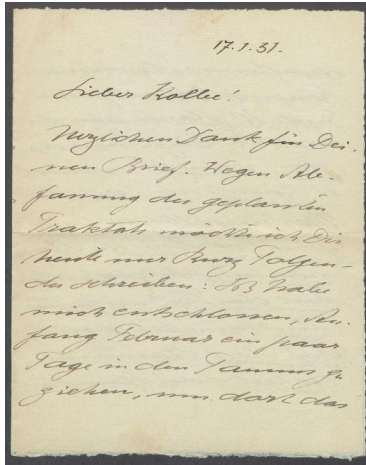 17.1.31.
Lieber Kolbe!
Herzlichen Dank für Dei-
nen Brief. Wegen Ab-
fassung des geplanten
Traktats möchte ich Dir
heute nur kurz Folgen-
des schreiben: Ich habe
mich entschlossen, An-
fang Februar ein paar
Tage in den Taunus zu
ziehen, um dort das